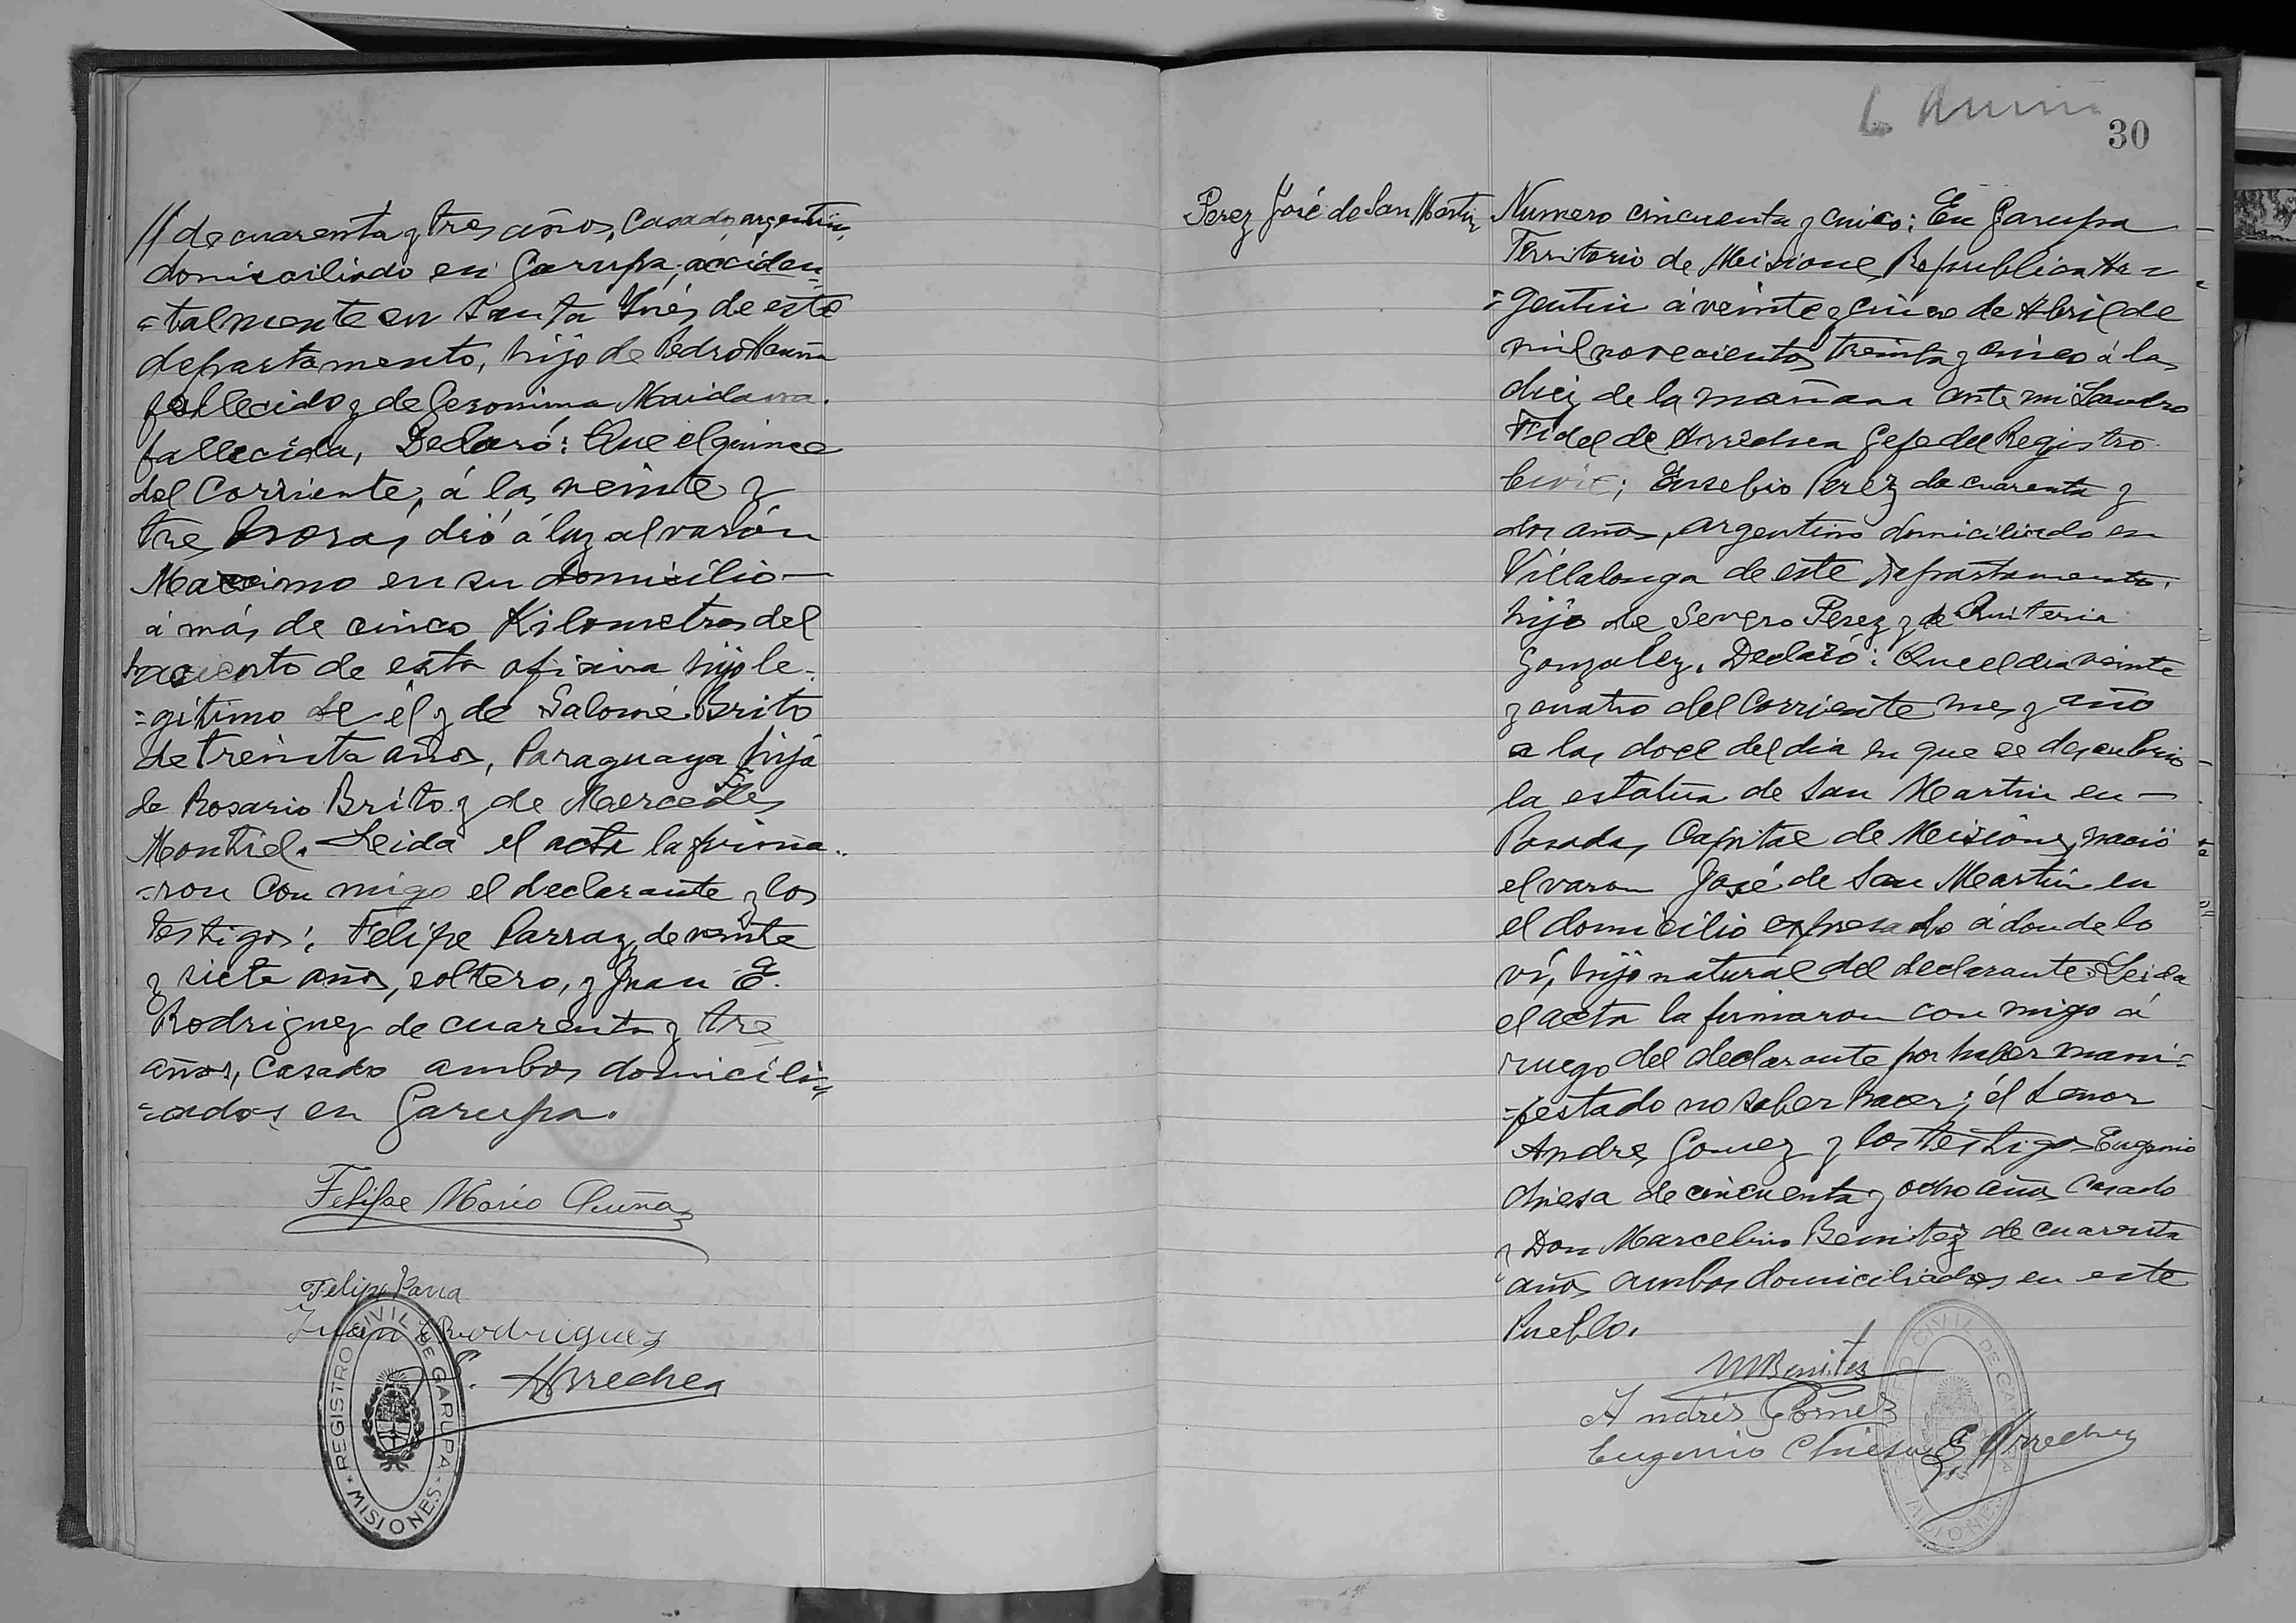 // de cuarenta y tres años, casado, argentino,
domiciliado en Garupa, acciden
=talmente en Santa Inés de este
departamento, hijo de Pedro Acuña
fallecido y de Geronima Maidana
fallecida, Declaró: Que el quince
del Corriente, á las veinte y
tres horas, dió á luz al varón
Maximo en su domicilio —
á más de cinco Kilometros del
asiento de esta oficina hijo le-
=gitimo de él y de Salomé Brito
de treinta años, Paraguaya hija
de Rosario Brito y de Mercedes
Montiel. Leida el acta la firma..
=ron con migo el declarante y los
testigos: Felipe Parra, de veinte
y siete años, soltero, y Juan E.
Rodriguez de cuarenta y tres
años, casado ambos domicili=
=ados en Garupa.
Felipe Mario Acuña
Felipe Parra
Juan E Rodriguez
F. Arrechea
REGISTRO CIVIL DE GARUPA
MISIONES
30
Perez José de San Martin
Numero cincuenta y cinco: En Garupa
Territorio de Misiones Republica Ar=
=gentin á veinte y cinco de Abril de
mil novecientos treinta y cinco á las
diez de la mañana ante mi Leandro
Fidel de Arrechea Gefe del Registro
Civil; Eusebio Perez de cuarenta y
dos años, argentino domiciliado en
Villalonga de este Departamento,
hijo de Severo Perez y de Quiteria
Gonzalez. Declaró: Que el dia veinte
y cuatro del Corriente mes y año
a las doce del dia en que se descubrio
la estatua de San Martin en —
Posadas, Capital de Misiones, nació
el varon José de San Martin en
el domicilio expresado á donde lo
ví, hijo natural del declarante. Leida
el acta la firmaron con migo á
ruego del declarante por haber mani=
=festado no saber hacer; él Senor
Andres Gomez y los testigos Eugenio
Chiesa de cincuenta y ocho años casado
y Don Marcelino Benitez de cuarenta
años ambos domiciliados en este
Pueblo.
M Benitez
Andrés Gómez
Eugenio Chiesa
F. Arrechea
REGISTRO CIVIL DE GARUPA
MISIONES